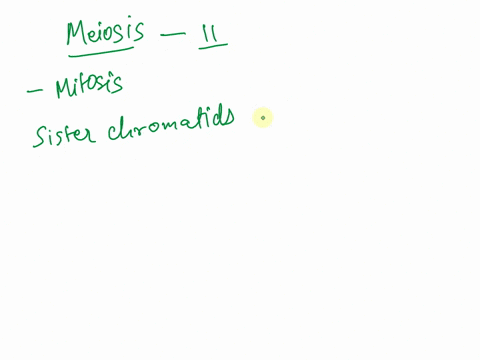 Meiosis - II
- Mitosis
Sister chromatids